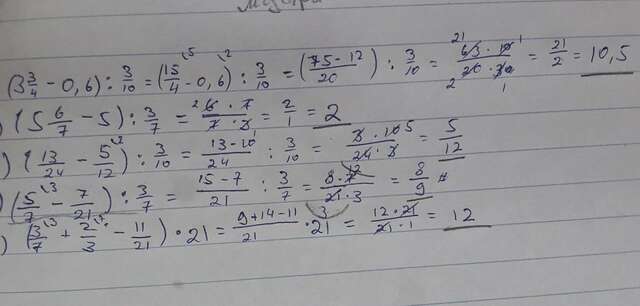 (3 3/4 - 0,6) : 3/10 = (15/4 - 0,6) : 3/10 = (75 - 12 / 20) : 3/10 = 63 · 10 / 20 · 3 = 21/2 = 10,5
) (5 6/7 - 5) : 3/7 = 6 · 7 / 7 · 3 = 2/1 = 2
) (13/24 - 5/12) : 3/10 = 13 - 10 / 24 : 3/10 = 3 · 10 / 24 · 3 = 5/12
) (5/7 - 7/21) : 3/7 = 15 - 7 / 21 : 3/7 = 8 · 7 / 21 · 3 = 8/9
) (3/7 + 2/3 - 11/21) · 21 = 9 + 14 - 11 / 21 · 21 = 12 · 21 / 21 · 1 = 12